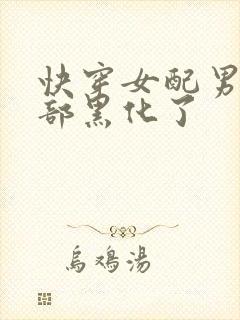 快穿女配男
部黑化了
烏鴉湯